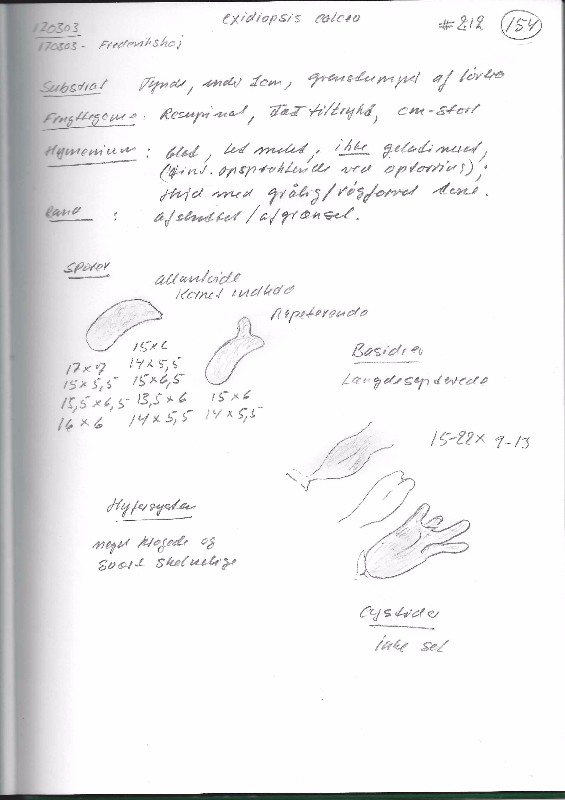 170303 Exidiopsis calcea #212 154
170303 - Frederikshøj
Substrat Tynde, indv 1cm, grenstumper af løvtræ
Frugtlegeme: Resupinat, tæt tiltrykt, cm-stort
Hymenium: glat, let melet, ikke gelatinøst,
opsprækkende ved optørring).
Hvid med grålig/røgfarvet tone.
Rand : afsluttet/afgrænset.
Sporer
allantoide
Kornet indhold
Repeterende
15x6
17x7 14x5,5
15x5,5 15x6,5
15,5x6,5 13,5x6 15x6
16x6 14x5,5 14x5,5
Basidier
Længdesepterede
15-22x 9-13
Hyfesystem
meget klogede og
svært skelnelige
Cystider
ikke set